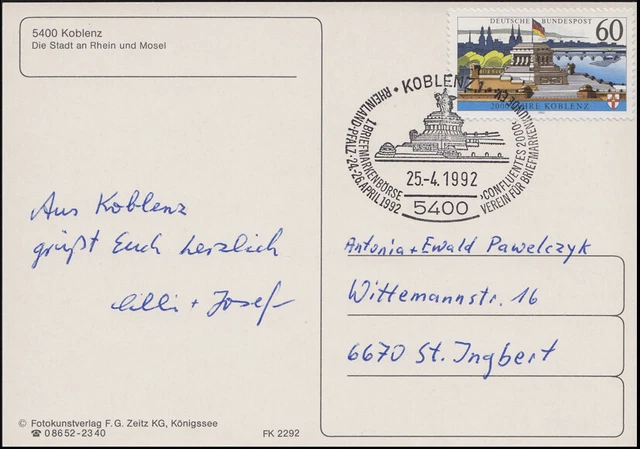 5400 Koblenz
Die Stadt an Rhein und Mosel
DEUTSCHE BUNDESPOST
60
2000 JAHRE KOBLENZ
KOBLENZ
RHEINLAND-PFALZ·24.-26.APRIL 1992
1.BRIEFMARKENBÖRSE
›CONFLUENTES 2000‹
VEREIN FÜR BRIEFMARKENKUNDE E.V.
25.-4.1992
5400
Aus Koblenz
grüßt Euch herzlich
Cilli + Josef
Antonia + Ewald Pawelczyk
Wittemannstr. 16
6670 St. Ingbert
© Fotokunstverlag F. G. Zeitz KG, Königssee
☎ 0 86 52 - 23 40
FK 2292